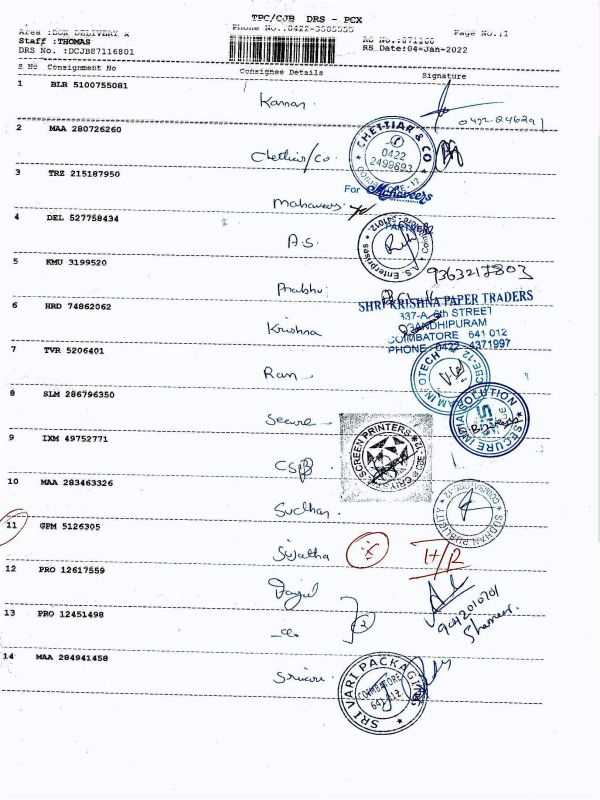 TPC/CJB DRS - PCX
Area :BOX DELIVERY x
Page No.:1
Staff :THOMAS
DRS No. :DCJB87116801
RS Date:04-Jan-2022
S No Consignment No Consignee Details Signature
1 BLR 5100755081 Kannan
2 MAA 280726260 Chettiar/co
CHETTIAR & CO
0422
2499693
3 TRZ 215187950 Mahaveers
For Mahaveers
PARTNER
4 DEL 527758434 A.S.
A.S. Enterprises
5 KMU 3199520 Prabhu
9363217803
6 HRD 74862062 Krishna
SHRI KRISHNA PAPER TRADERS
337-A, 6th STREET
GANDHIPURAM
COIMBATORE 641 012
PHONE : 0422 - 4371997
7 TVR 5206401 Ram
8 SLM 286796350 Secure
SECURE INDIA SOLUTION
9 IXM 49752771
SCREEN PRINTERS
10 MAA 283463326 Sudhan
SUDHAN PUBLICITY
11 GPM 5126305 Sujatha
12 PRO 12617559
13 PRO 12451498
9042010701
14 MAA 284941458 Srivari
SRI VARI PACKAGING
COIMBATORE